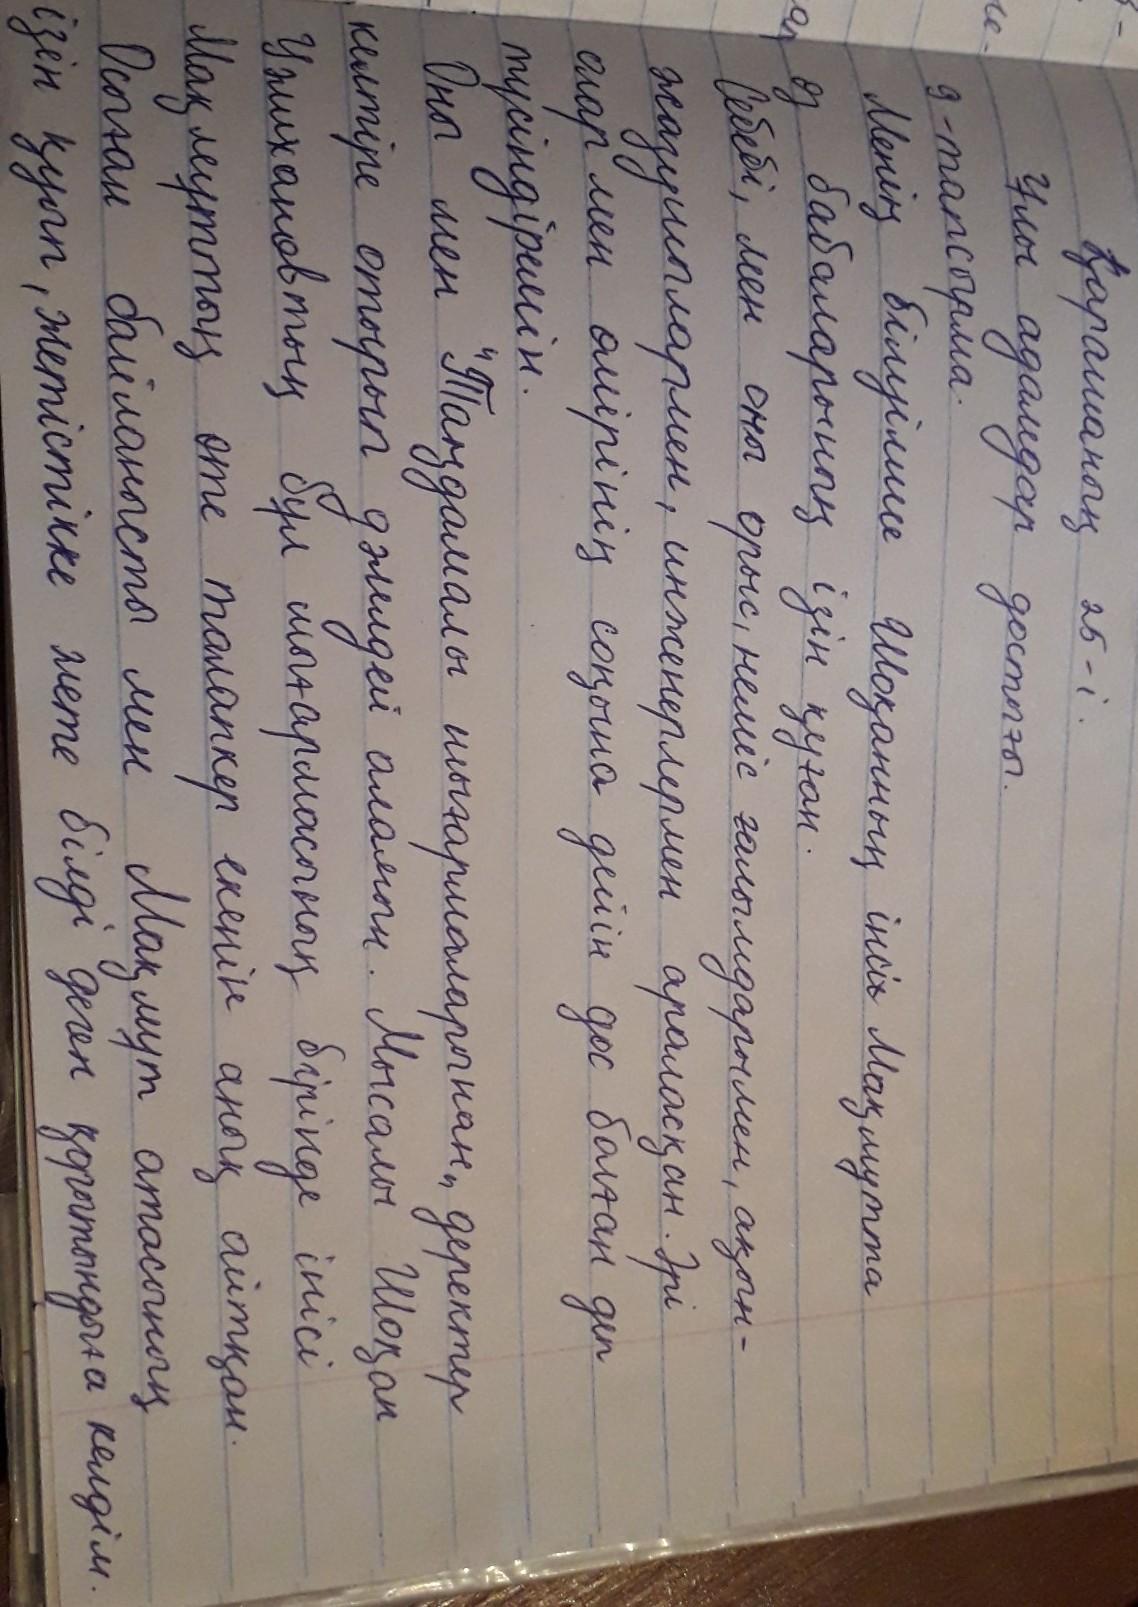 Қарашаның 25-і.
Ұлы адамдар достығы.
9-тапсырма.
Менің білуімше Шоқанның інісі Мақмутта
өз бабаларының ізін қуған.
Себебі, мен оны орыс, неміс ғалымдарымен, ақын-
жазушылармен, инженерлермен араласқан. Әрі
олармен өмірінің соңына дейін дос болған деп
түсіндіремін.
Оны мен "Таңдамалы шығармаларынан" деректер
келтіре отырып дәлелдей аламын. Мысалы Шоқан
Уәлихановтың бұл шығармасының бірінде інісі
Мақмұттың өте талапкер екенін анық айтқан.
Осыған байланысты мен Мақмұт атасының
ізін қуып, жетістікке жете білді деген қорытындыға келдім.